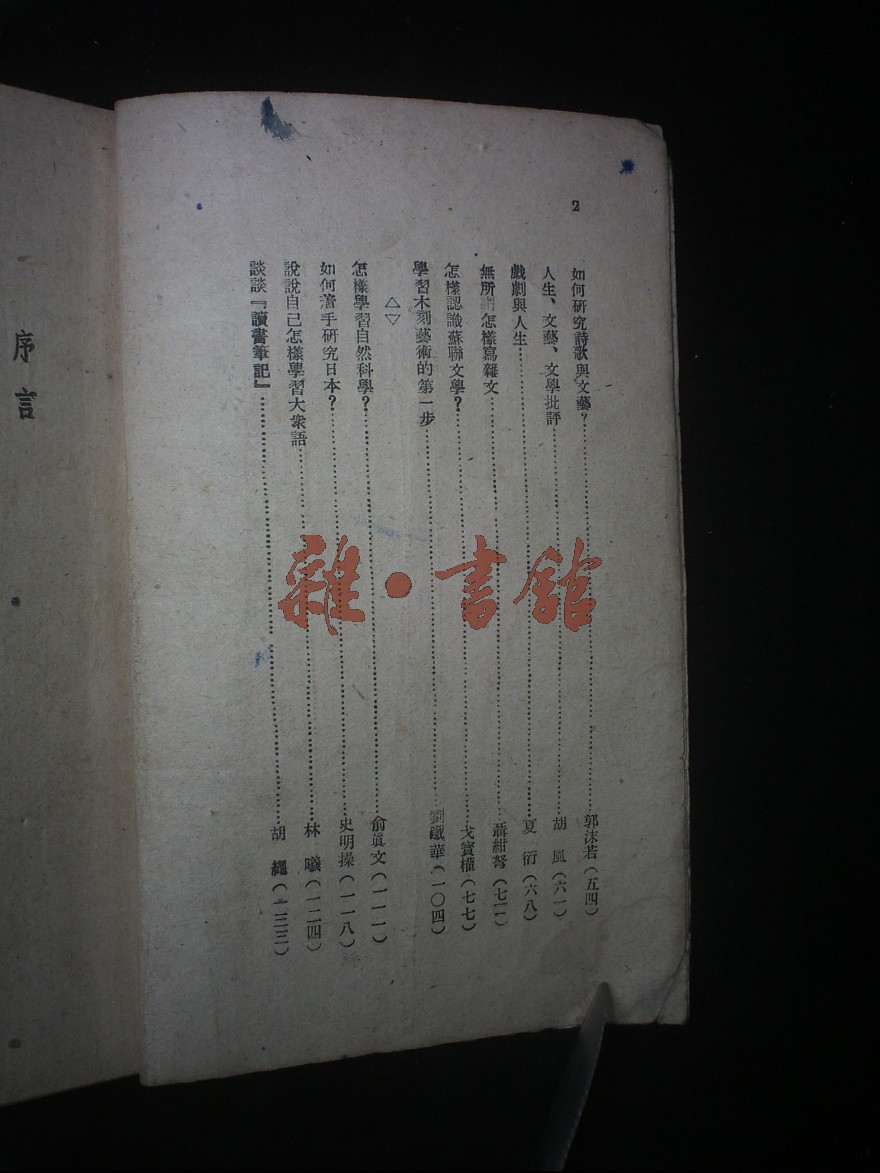 2
如何研究詩歌與文藝?……郭沫若(五四)
人生、文藝、文學批評……胡風(六一)
戲劇與人生……夏衍(六八)
無所謂怎樣寫雜文……聶紺弩(七一)
怎樣認識蘇聯文學?……戈寶權(七七)
學習木刻藝術的第一步……劉鐵華(一〇四)
△▽
怎樣學習自然科學?……俞眞文(一一一)
如何着手研究日本?……史明操(一一八)
說說自己怎樣學習大衆語……林曦(一二四)
談談『讀書筆記』……胡繩(一三三)
序言
雜·書館